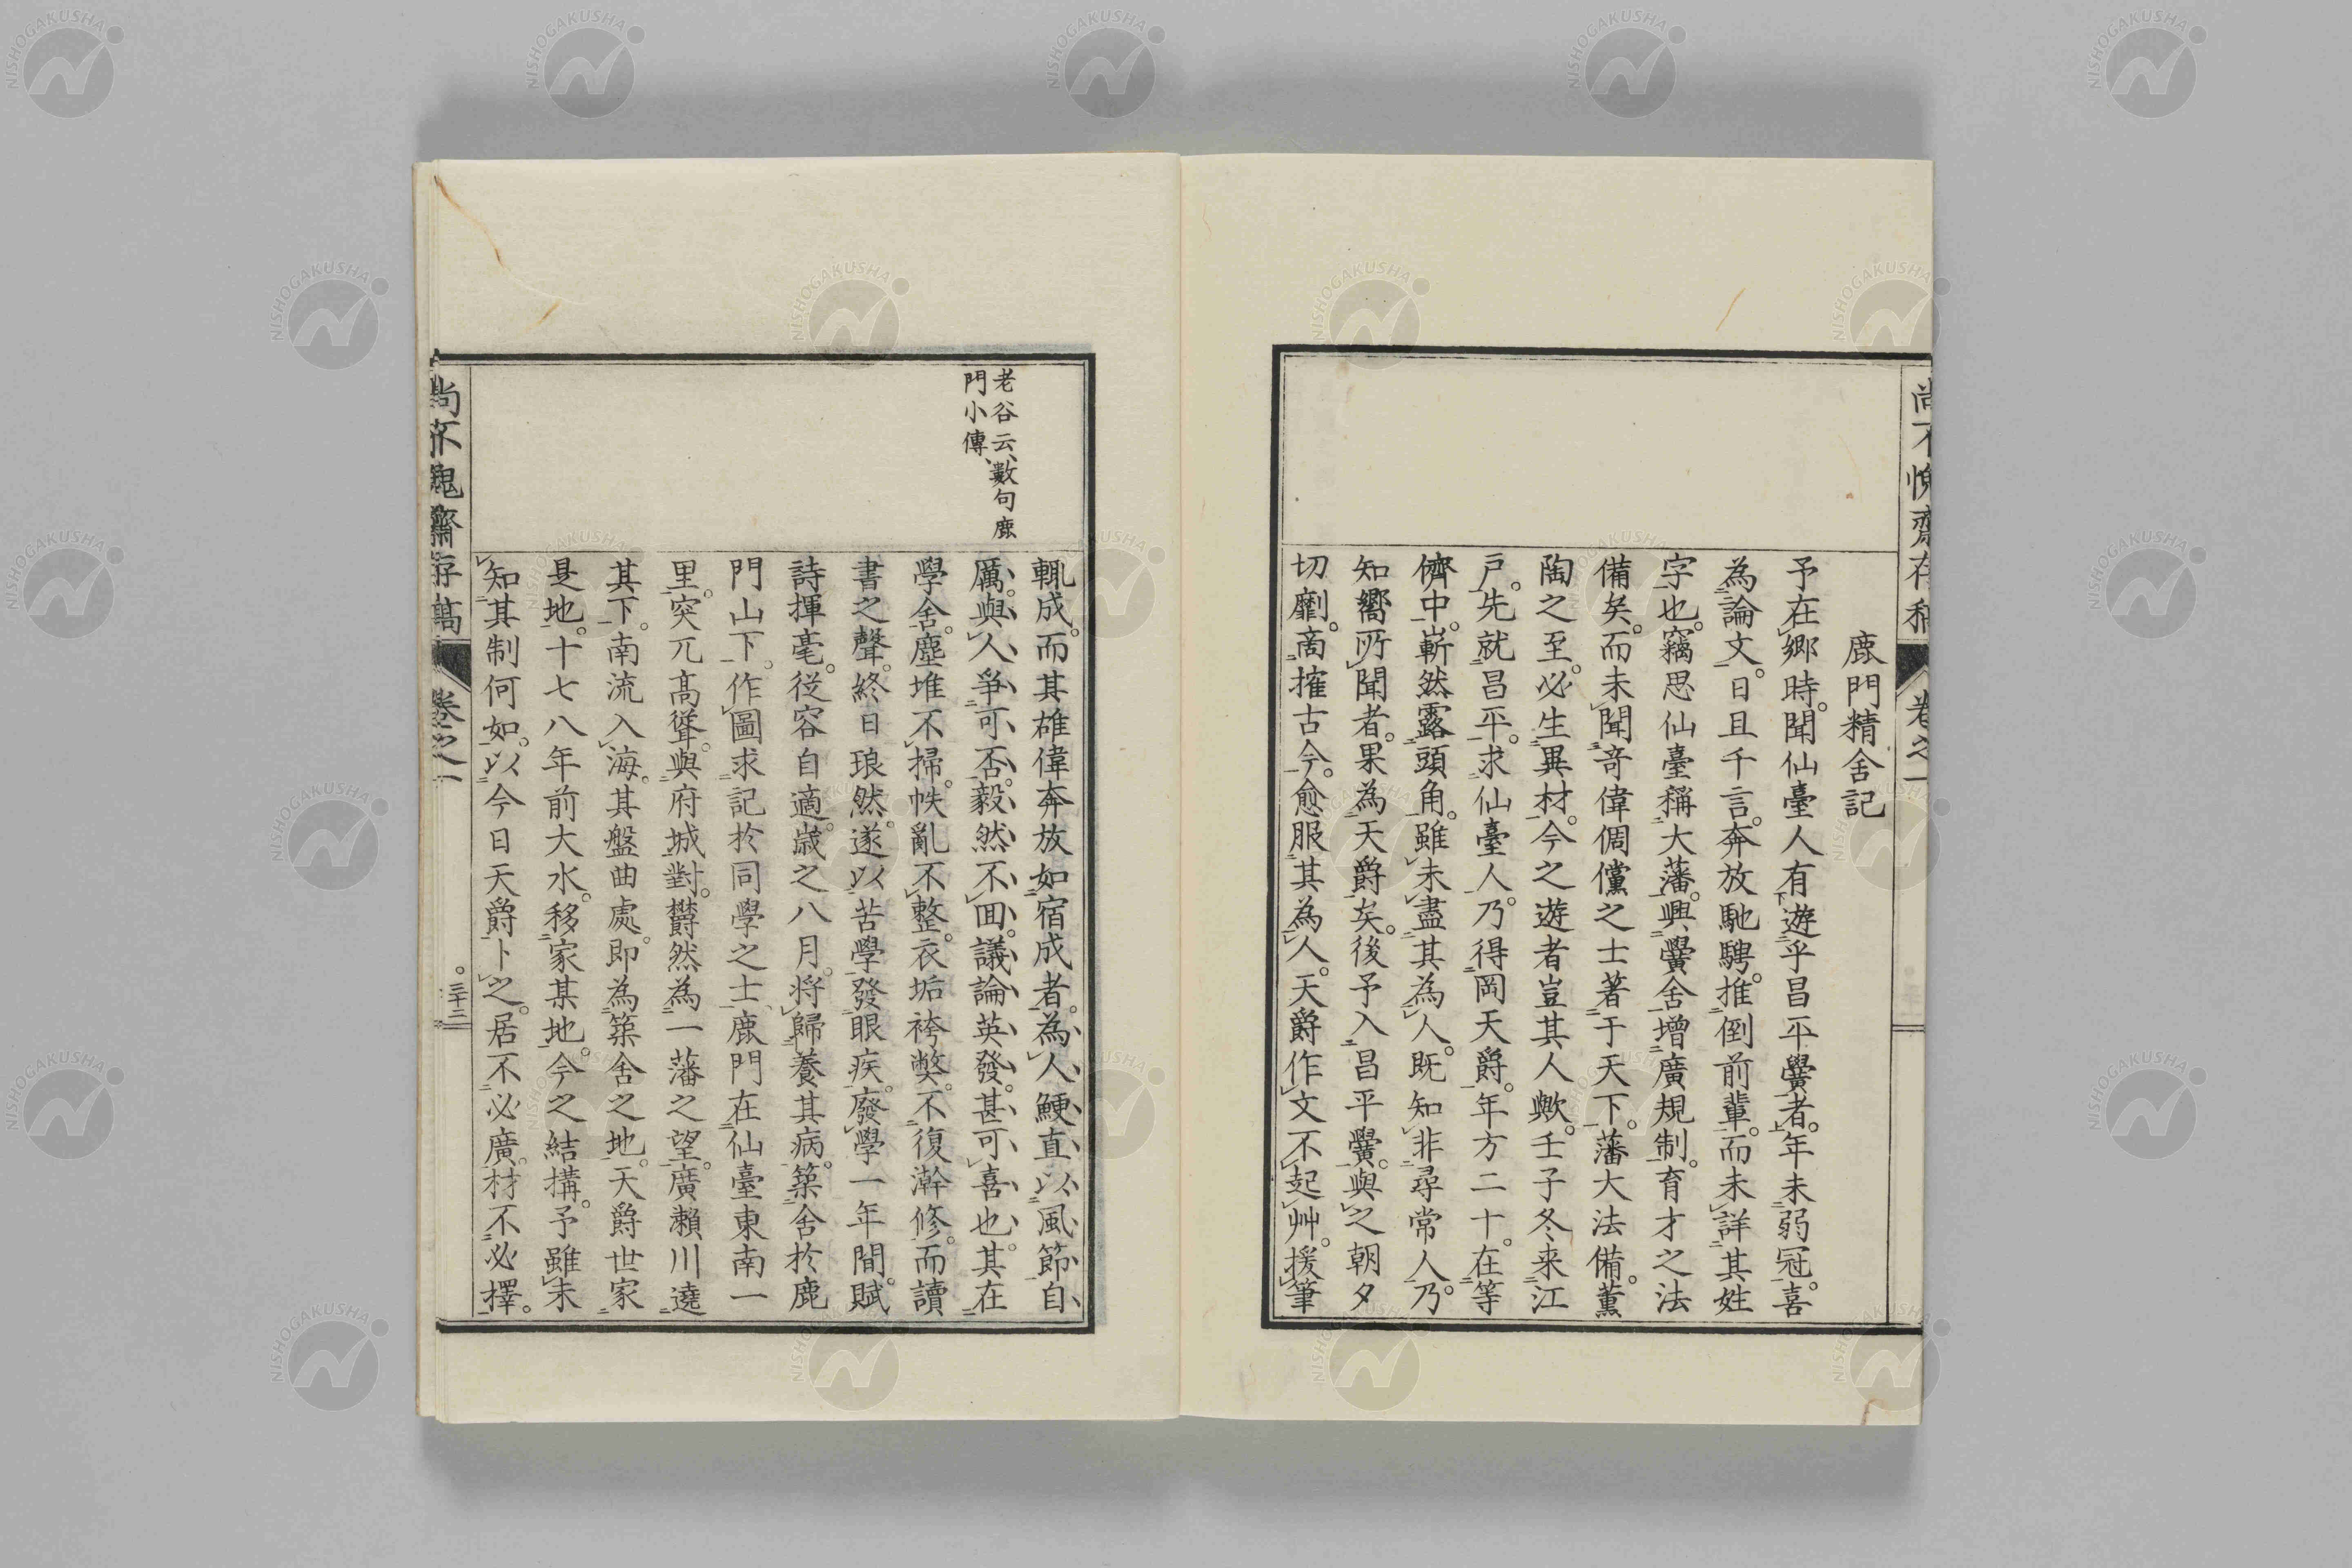 尚不愧齋存稿 卷之一
鹿門精舍記
予在鄉時。聞仙臺人有遊乎昌平黌者。年未弱冠。喜
為論文。日且千言。奔放馳騁。推倒前輩。而未詳其姓
字也。竊思仙臺稱大藩。興黌舍增廣規制。育才之法
備矣。而未聞奇偉倜儻之士著于天下。藩大法備。薰
陶之至。必生異材。今之遊者豈其人歟。壬子冬来江
戶。先就昌平。求仙臺人。乃得岡天爵。年方二十。在等
儕中。嶄然露頭角。雖未盡其為人。既知非尋常人。乃
知嚮所聞者。果為天爵矣。後予入昌平黌。與之朝夕
切劘。商搉古今。愈服其為人。天爵作文不起艸。援筆
老谷云、數句鹿
門小傳、
輒成。而其雄偉奔放如宿成者。為人鯁直以風節自
厲。與人爭可否。毅然不回。議論英發。甚可喜也。其在
學舍。塵堆不掃。帙亂不整。衣垢袴獘。不復澣修。而讀
書之聲。終日琅然。遂以苦學發眼疾。廢學一年間。賦
詩揮毫。從容自適。歲之八月。將歸養其病。築舍於鹿
門山下。作圖求記於同學之士。鹿門在仙臺東南一
里。突兀高聳。與府城對。欝然為一藩之望。廣瀨川遶
其下。南流入海。其盤曲處。即為築舍之地。天爵世家
是地。十七八年前大水。移家某地。今之結構。予雖未
知其制何如。以今日天爵卜之。居不必廣。材不必擇。
尚不愧齋存稿 卷之一 三十二
NISHOGAKUSHA